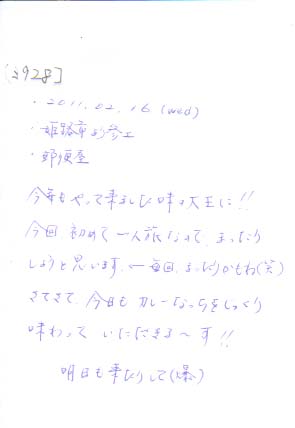 [3928]
・2011.02.16 (wed)
・姫路市より参上
・郵便屋
今年もやって来ました味の大王に!!
今回 初めて一人旅なので、まったり
しようと思います。←毎回、まったりかもね(笑)
さてさて、今日も カレーらーめんをじっくり
味わって いただきま〜す!!
明日も来たりして(爆)